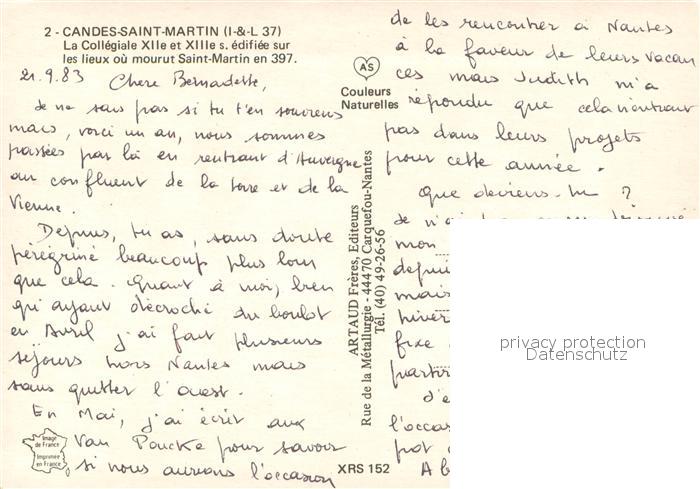 2 - CANDES-SAINT-MARTIN (I-&-L 37)
La Collégiale XIIe et XIIIe s. édifiée sur
les lieux où mourut Saint-Martin en 397.
21.9.83 Chère Bernadette,
Je ne sais pas si tu t'en souviens
mais, voici un an, nous sommes
passées par là en rentrant d'Auvergne
au confluent de la Loire et de la
Vienne.
Depuis, tu as, sans doute
pérégriné beaucoup plus loin
que cela. Quant à moi, bien
qu'ayant décroché du boulot
en Avril j'ai fait plusieurs
séjours hors Nantes mais
sans quitter l'ouest.
En Mai, j'ai écrit aux
Van Poucke pour savoir
si nous aurions l'occasion
Image
de France
Imprimée
en France
AS
Couleurs
Naturelles
ARTAUD Frères, Editeurs
Rue de la Métallurgie - 44470 Carquefou-Nantes
Tél. (40) 49-26-56
XRS 152
de les rencontrer à Nantes
à la faveur de leurs vacan
ces mais Judith m'a
répondu que cela n'entrait
pas dans leurs projets
pour cette année.
Que deviens-tu ?
Je n'ai
mon
depuis
mais
hiver
fixe
partir
l'occas
pot
A b
privacy protection
Datenschutz